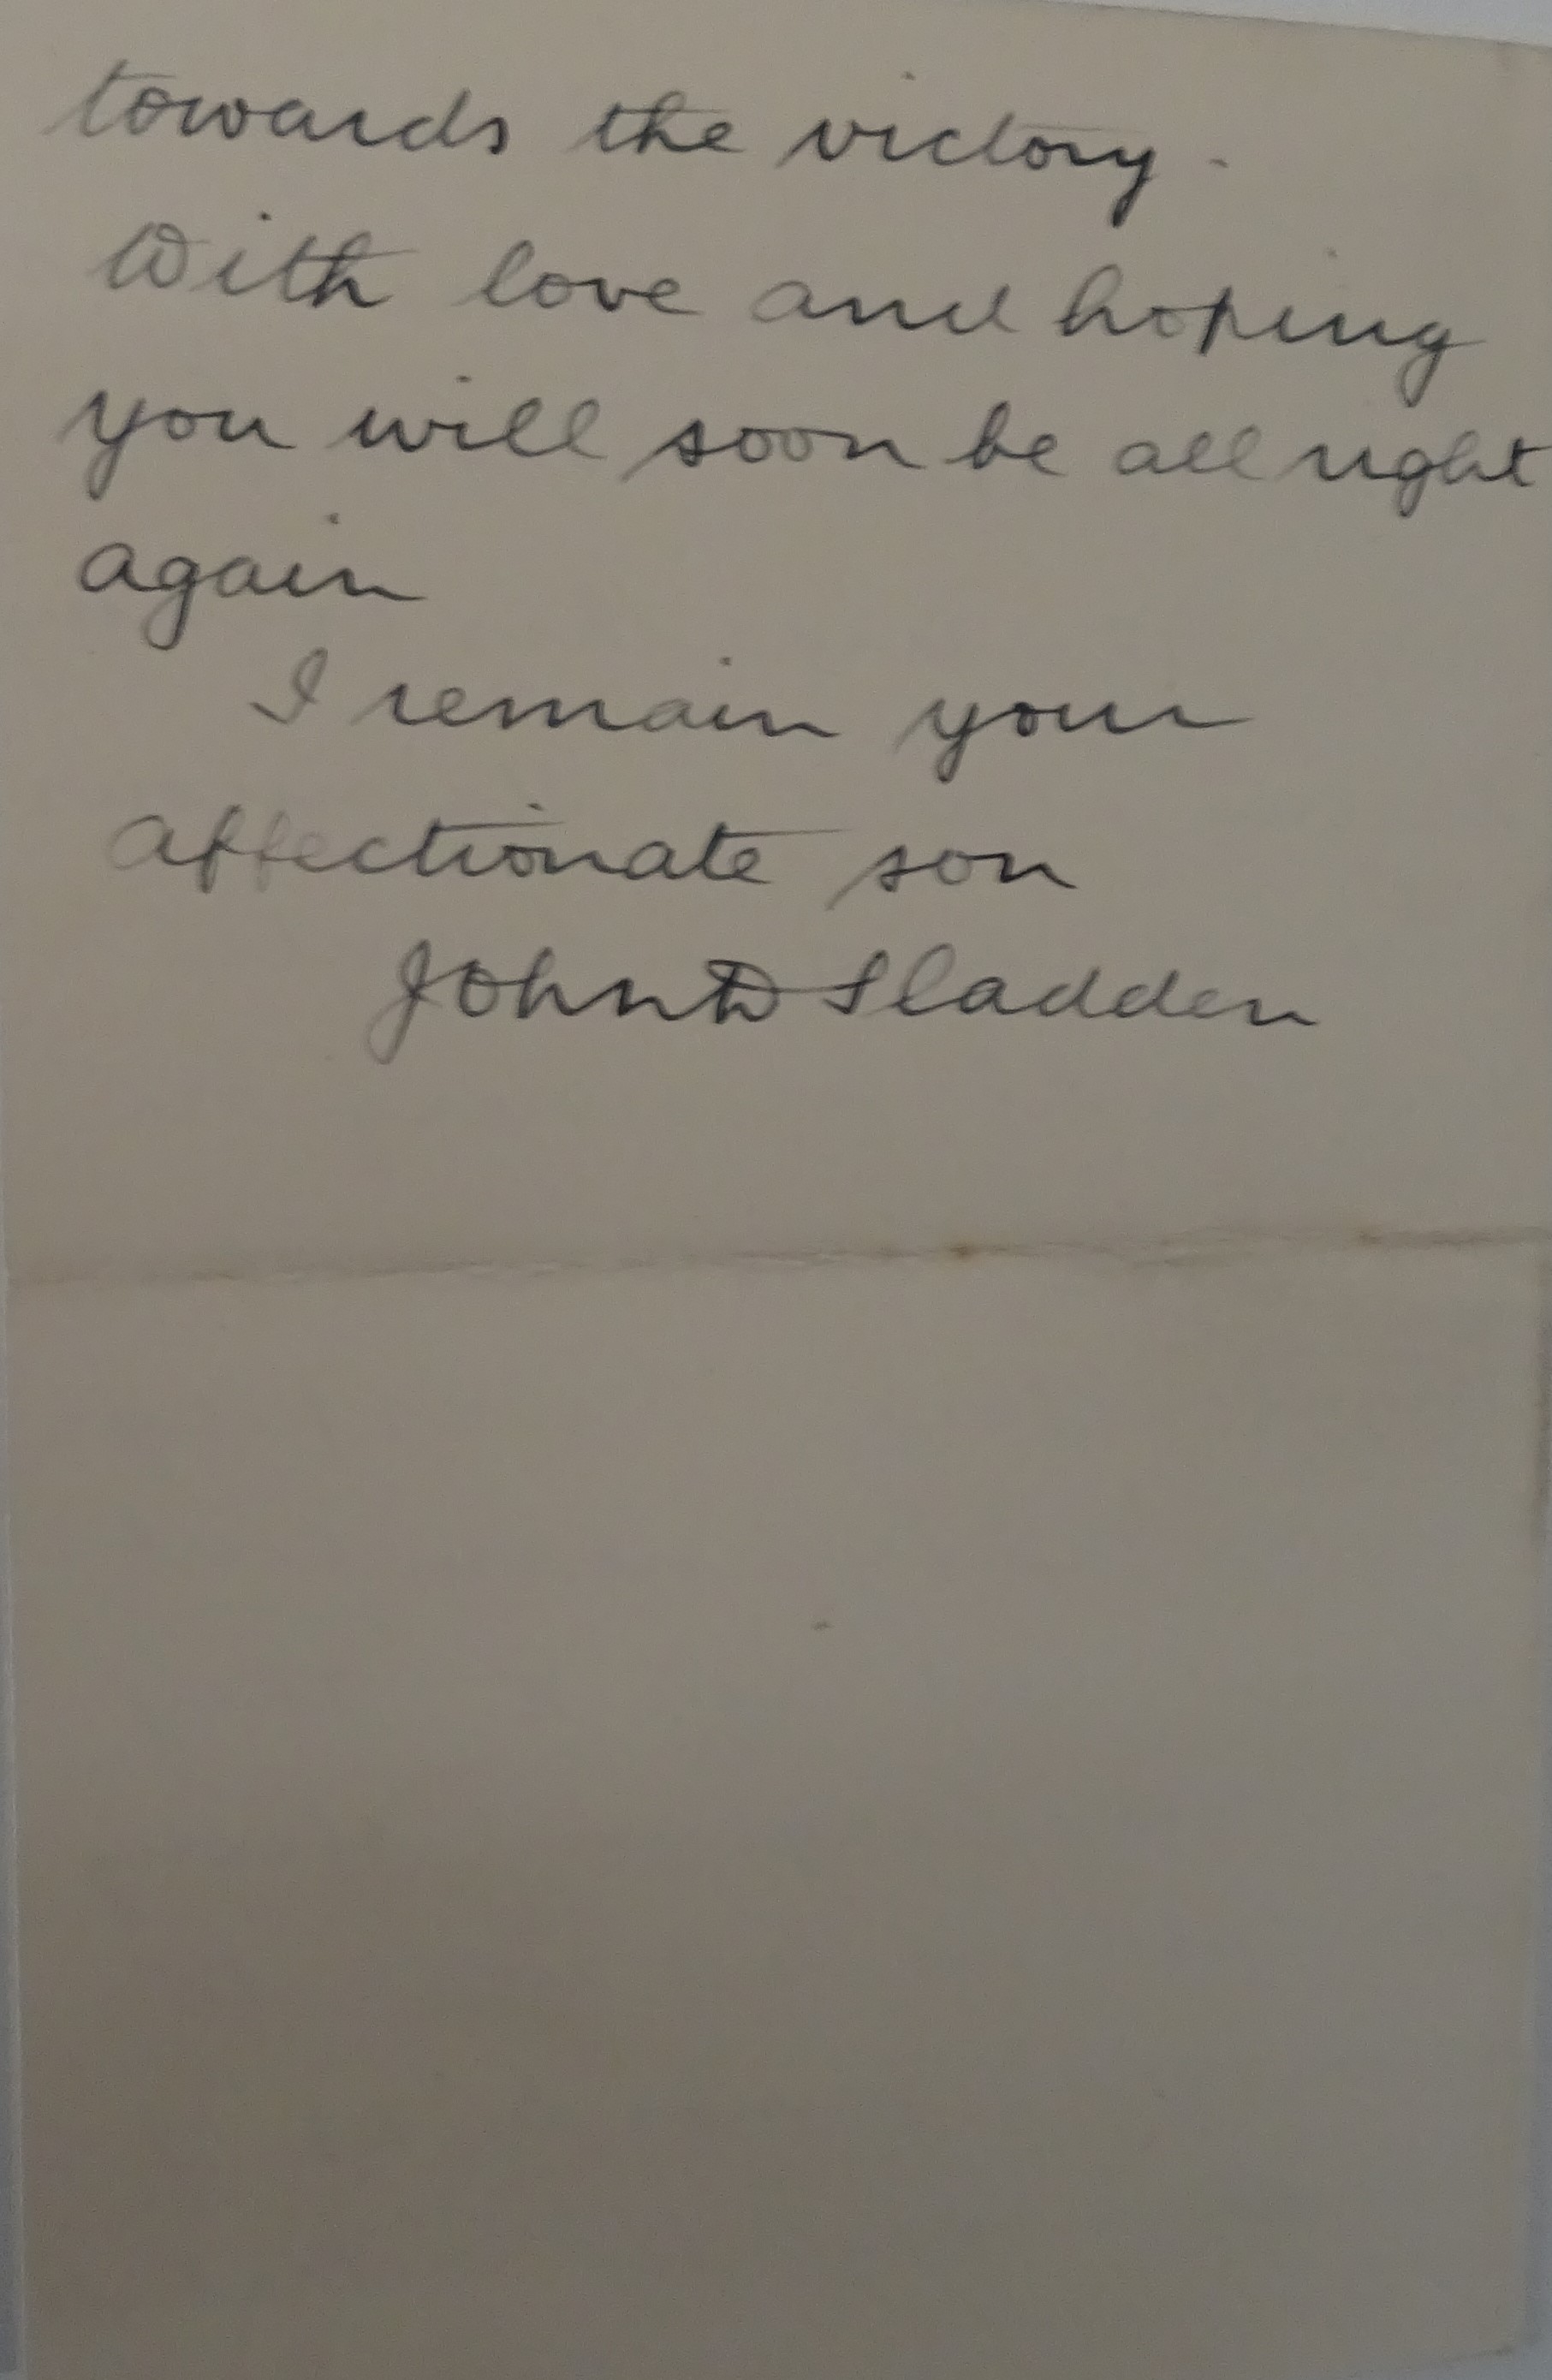 towards the victory.
With love and hoping
you will soon be all right
again
I remain your
affectionate son
John D Sladden